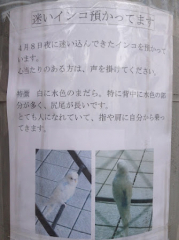 迷いインコ預かってます
4月8日夜に迷い込んできたインコを預かって
います。
心当たりのある方は、声を掛けてください。
特徴 白に水色のまだら、特に背中に水色の部
分が多く、尻尾が長いです。
とても人になれていて、指や肩に自分から乗っ
てきます。